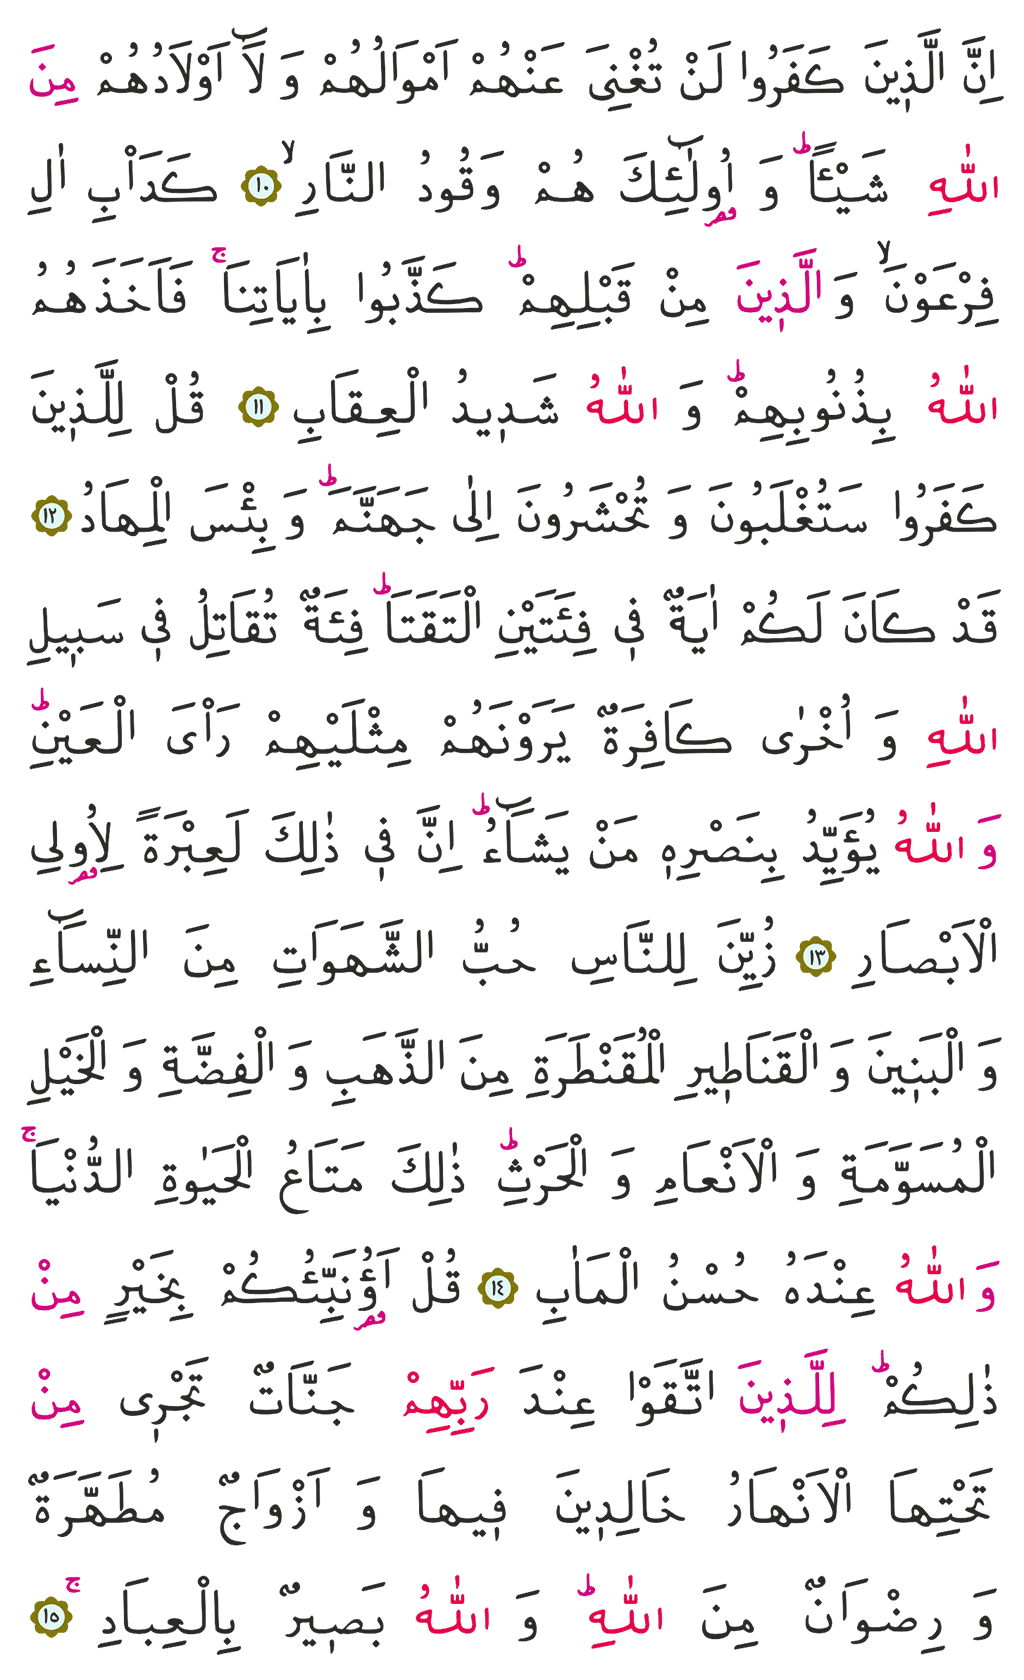 اِنَّ الَّذٖينَ كَفَرُوا لَنْ تُغْنِىَ عَنْهُمْ اَمْوَالُهُمْ وَ لَٓا اَوْلَادُهُمْ مِنَ
اللّٰهِ شَيْـًٔاؕ وَ اُو۬لٰٓئِكَ هُمْ وَقُودُ النَّارِۙ ﴿١٠﴾ كَدَاْبِ اٰلِ
فِرْعَوْنَۙ وَ الَّذٖينَ مِنْ قَبْلِهِمْؕ كَذَّبُوا بِاٰيَاتِنَاۚ فَاَخَذَهُمُ
اللّٰهُ بِذُنُوبِهِمْؕ وَ اللّٰهُ شَدٖيدُ الْعِقَابِ ﴿١١﴾ قُلْ لِلَّذٖينَ
كَفَرُوا سَتُغْلَبُونَ وَ تُحْشَرُونَ اِلٰى جَهَنَّمَؕ وَ بِئْسَ الْمِهَادُ ﴿١٢﴾
قَدْ كَانَ لَكُمْ اٰيَةٌ فٖى فِئَتَيْنِ الْتَقَتَاؕ فِئَةٌ تُقَاتِلُ فٖى سَبٖيلِ
اللّٰهِ وَ اُخْرٰى كَافِرَةٌ يَرَوْنَهُمْ مِثْلَيْهِمْ رَاْىَ الْعَيْنِؕ
وَ اللّٰهُ يُؤَيِّدُ بِنَصْرِهٖ مَنْ يَشَٓاءُؕ اِنَّ فٖى ذٰلِكَ لَعِبْرَةً لِاُو۬لِى
الْاَبْصَارِ ﴿١٣﴾ زُيِّنَ لِلنَّاسِ حُبُّ الشَّهَوَاتِ مِنَ النِّسَٓاءِ
وَ الْبَنٖينَ وَ الْقَنَاطٖيرِ الْمُقَنْطَرَةِ مِنَ الذَّهَبِ وَ الْفِضَّةِ وَ الْخَيْلِ
الْمُسَوَّمَةِ وَ الْاَنْعَامِ وَ الْحَرْثِؕ ذٰلِكَ مَتَاعُ الْحَيٰوةِ الدُّنْيَاۚ
وَ اللّٰهُ عِنْدَهُ حُسْنُ الْمَاٰبِ ﴿١٤﴾ قُلْ اَؤُ۬نَبِّئُكُمْ بِخَيْرٍ مِنْ
ذٰلِكُمْؕ لِلَّذٖينَ اتَّقَوْا عِنْدَ رَبِّهِمْ جَنَّاتٌ تَجْرٖى مِنْ
تَحْتِهَا الْاَنْهَارُ خَالِدٖينَ فٖيهَا وَ اَزْوَاجٌ مُطَهَّرَةٌ
وَ رِضْوَانٌ مِنَ اللّٰهِؕ وَ اللّٰهُ بَصٖيرٌ بِالْعِبَادِۚ ﴿١٥﴾